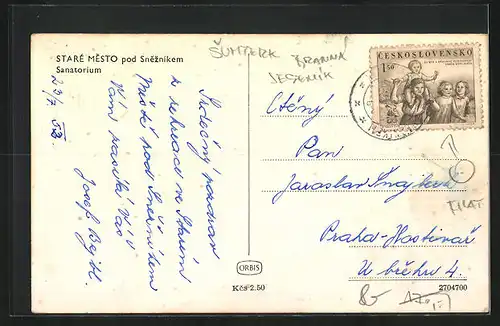 STARÉ MĚSTO pod Sněžníkem
Sanatorium
ŠUMPERK BRANNÁ
JESENÍK
ČESKOSLOVENSKO
1,50
23/7 53.
Srdečný pozdrav
z rekreace ve Starém
Městě pod Sněžníkem
Vám zasílá Váš
Josef
Ctěný
Pan
Jaroslav
Praha-Hostivař
U břehu 4.
FILAT
ORBIS
Kčs 2.50
2704700